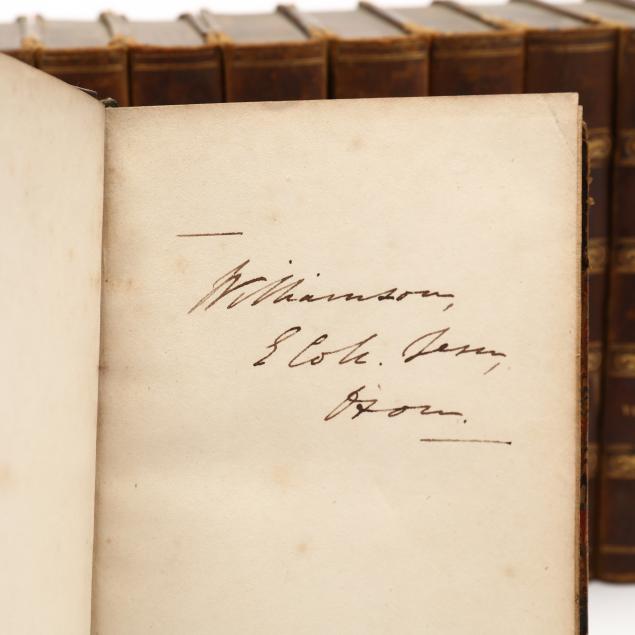 Williamson,
E Coll. Jesu,
Oxon.